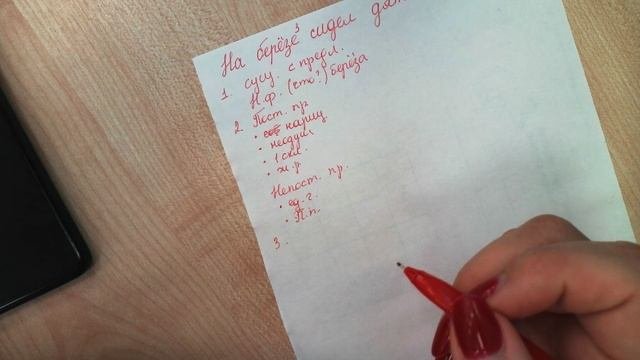 На берёзе³ сидел
1. сущ. с предл.
Н.ф. (что?) берёза
2. Пост. пр
• нариц.
• неодуш
• 1 скл.
• ж.р.
Непост. пр.
• ед. ч.
• П.п.
3.